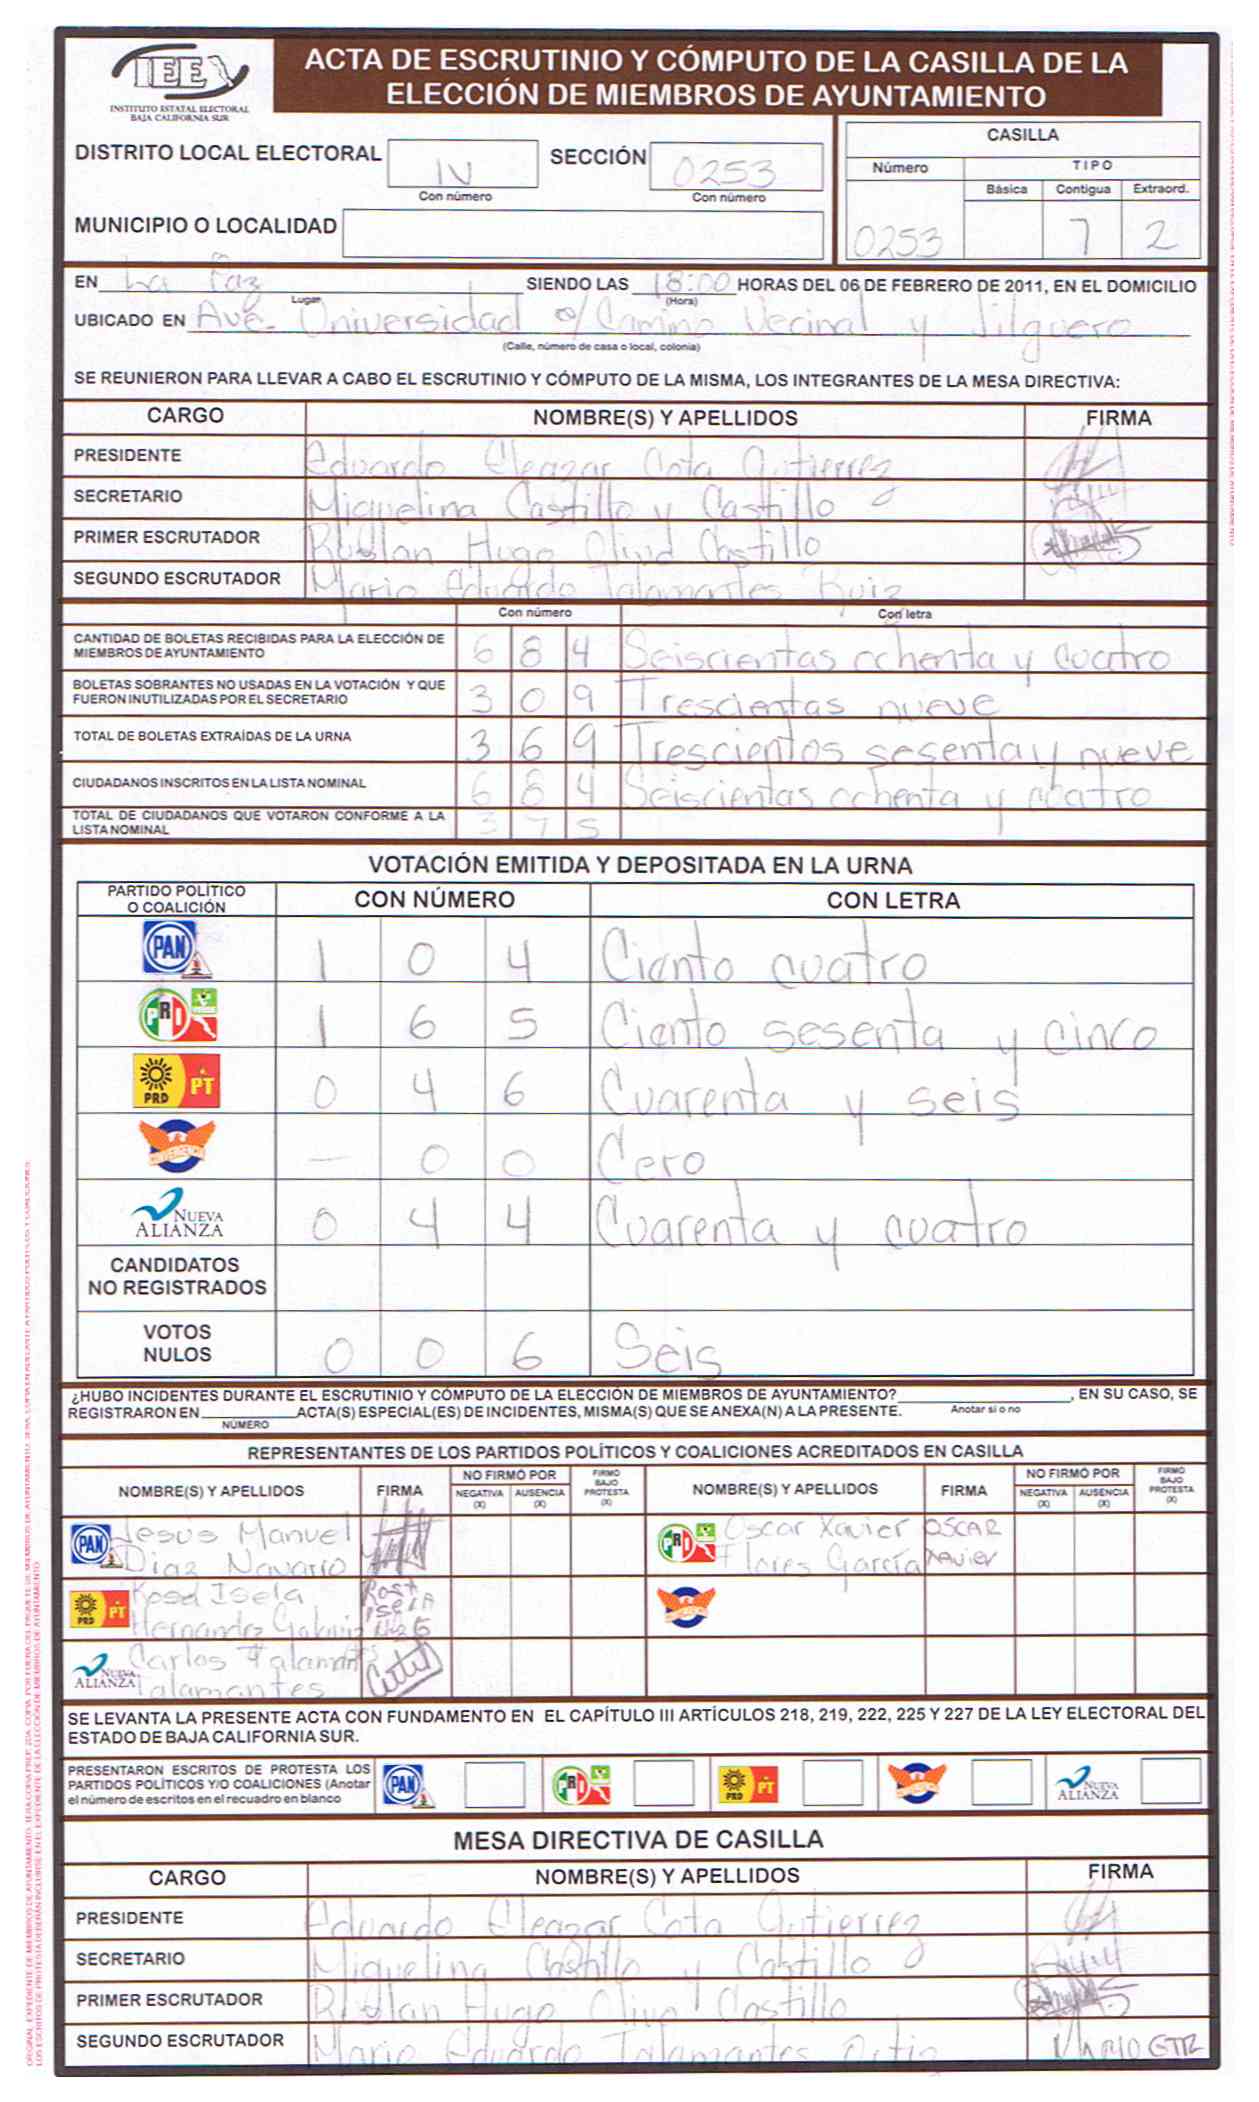 IEE
INSTITUTO ESTATAL ELECTORAL
BAJA CALIFORNIA SUR
ACTA DE ESCRUTINIO Y CÓMPUTO DE LA CASILLA DE LA
ELECCIÓN DE MIEMBROS DE AYUNTAMIENTO
DISTRITO LOCAL ELECTORAL IV SECCIÓN 0253
Con número Con número
MUNICIPIO O LOCALIDAD
CASILLA
Número TIPO
Básica Contigua Extraord.
0253 7 2
EN La Paz SIENDO LAS 18:00 HORAS DEL 06 DE FEBRERO DE 2011, EN EL DOMICILIO
Lugar (Hora)
UBICADO EN Ave. Universidad e/Camino Vecinal y Jilguero
(Calle, número de casa o local, colonia)
SE REUNIERON PARA LLEVAR A CABO EL ESCRUTINIO Y CÓMPUTO DE LA MISMA, LOS INTEGRANTES DE LA MESA DIRECTIVA:
CARGO NOMBRE(S) Y APELLIDOS FIRMA
PRESIDENTE Eduardo Eleazar Cota Gutierrez
SECRETARIO Miguelina Castillo y Castillo
PRIMER ESCRUTADOR Ruslan Hugo Castillo
SEGUNDO ESCRUTADOR Mario Eduardo Talamantes Ruiz
Con número Con letra
CANTIDAD DE BOLETAS RECIBIDAS PARA LA ELECCIÓN DE
MIEMBROS DE AYUNTAMIENTO 6 8 4 Seiscientas ochenta y cuatro
BOLETAS SOBRANTES NO USADAS EN LA VOTACIÓN Y QUE
FUERON INUTILIZADAS POR EL SECRETARIO 3 0 9 Trescientas nueve
TOTAL DE BOLETAS EXTRAÍDAS DE LA URNA 3 6 9 Trescientos sesenta y nueve
CIUDADANOS INSCRITOS EN LA LISTA NOMINAL 6 8 4 Seiscientas ochenta y cuatro
TOTAL DE CIUDADANOS QUE VOTARON CONFORME A LA
LISTA NOMINAL 3 7 5
VOTACIÓN EMITIDA Y DEPOSITADA EN LA URNA
PARTIDO POLÍTICO
O COALICIÓN CON NÚMERO CON LETRA
PAN 1 0 4 Ciento cuatro
PRI 1 6 5 Ciento sesenta y cinco
PRD PT 0 4 6 Cuarenta y seis
— 0 0 Cero
NUEVA
ALIANZA 0 4 4 Cuarenta y cuatro
CANDIDATOS
NO REGISTRADOS
VOTOS
NULOS 0 0 6 Seis
¿HUBO INCIDENTES DURANTE EL ESCRUTINIO Y CÓMPUTO DE LA ELECCIÓN DE MIEMBROS DE AYUNTAMIENTO? , EN SU CASO, SE
REGISTRARON EN ACTA(S) ESPECIAL(ES) DE INCIDENTES, MISMA(S) QUE SE ANEXA(N) A LA PRESENTE. Anotar si o no
NÚMERO
REPRESENTANTES DE LOS PARTIDOS POLÍTICOS Y COALICIONES ACREDITADOS EN CASILLA
NOMBRE(S) Y APELLIDOS FIRMA NO FIRMÓ POR NEGATIVA (X) AUSENCIA (X) FIRMÓ BAJO PROTESTA (X) NOMBRE(S) Y APELLIDOS FIRMA NO FIRMÓ POR NEGATIVA (X) AUSENCIA (X) FIRMÓ BAJO PROTESTA (X)
PAN Jesús Manuel PRI Oscar Xavier OSCAR
Diaz Navarro Flores García Xavier
PRD PT Rosa Isela Rosa
Hernandez Isela
NUEVA ALIANZA Carlos Talamantes
Talamantes
SE LEVANTA LA PRESENTE ACTA CON FUNDAMENTO EN EL CAPÍTULO III ARTÍCULOS 218, 219, 222, 225 Y 227 DE LA LEY ELECTORAL DEL
ESTADO DE BAJA CALIFORNIA SUR.
PRESENTARON ESCRITOS DE PROTESTA LOS
PARTIDOS POLÍTICOS Y/O COALICIONES (Anotar
el número de escritos en el recuadro en blanco
PAN PRI PRD PT NUEVA ALIANZA
MESA DIRECTIVA DE CASILLA
CARGO NOMBRE(S) Y APELLIDOS FIRMA
PRESIDENTE Eduardo Eleazar Cota Gutierrez
SECRETARIO Miguelina Castillo y Castillo
PRIMER ESCRUTADOR Ruslan Hugo Castillo
SEGUNDO ESCRUTADOR Mario Eduardo Talamantes Ortiz